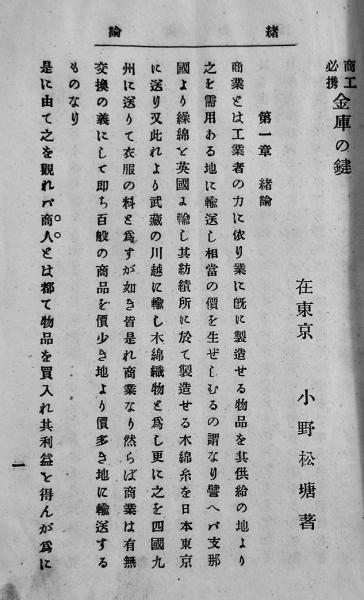 緒論
商工
必携
金庫の鍵
在東京 小野松塘著
第一章 緒論
商業とは工業者の力に依り業に既に製造せる物品を其供給の地より
之を需用ある地に輸送し相當の價を生ぜしむるの謂なり譬へバ支那
國より繰綿を英國ょ輸し其紡績所に於て製造せる木綿糸を日本東京
に送り又此れより武藏の川越に輸し木綿織物と爲し更に之を四國九
州に送りて衣服の料と爲すが如き皆是れ商業なり然らば商業は有無
交換の義にして即ち百般の商品を價少き地より價多き地に輸送する
ものなり
是に由て之を觀れバ商人とは都て物品を買入れ其利益を得んが爲に
一